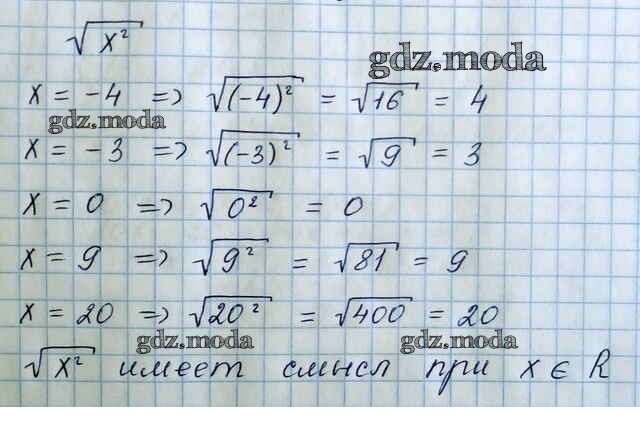 √x²
gdz.moda
x = -4 => √(-4)² = √16 = 4
gdz.moda
x = -3 => √(-3)² = √9 = 3
x = 0 => √0² = 0
x = 9 => √9² = √81 = 9
x = 20 => √20² = √400 = 20
gdz.moda gdz.moda
√x² имеет смысл при x ∈ R